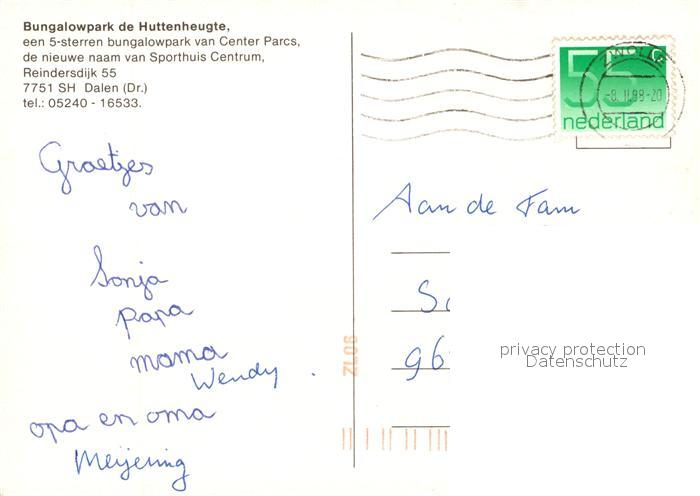 Bungalowpark de Huttenheugte,
een 5-sterren bungalowpark van Center Parcs,
de nieuwe naam van Sporthuis Centrum,
Reindersdijk 55
7751 SH Dalen (Dr.)
tel.: 05240 - 16533.
Groetjes
van
Sonja
papa
mama
Wendy .
opa en oma
Meijering
ZWOLLE
-8.11.88-20
55 c
nederland
Aan de Fam
S
96
privacy protection
Datenschutz
ZL06